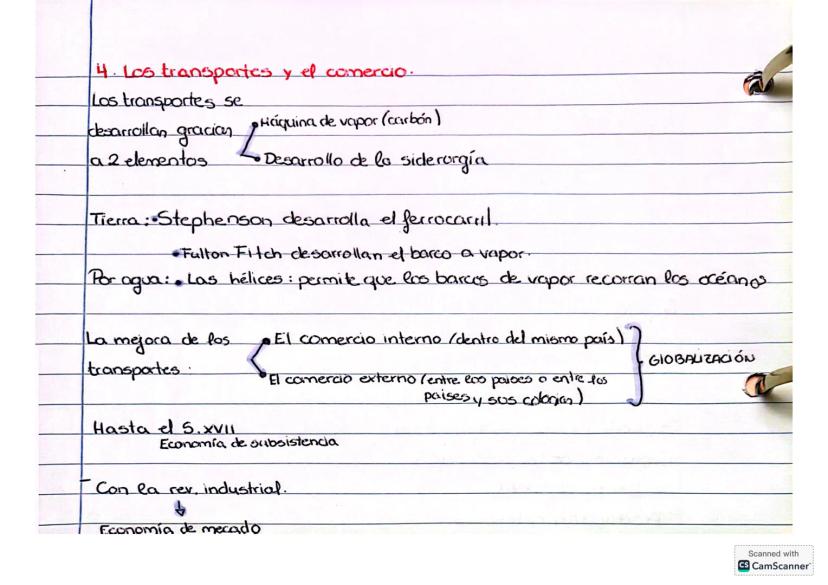 4. Los transportes y el comercio.
Los transportes se
desarrollan gracias
a 2 elementos
• Máquina de vapor (carbón)
• Desarrollo de la siderurgía
Tierra: • Stephenson desarrolla el ferrocarril.
• Fulton Fitch desarrollan el barco a vapor.
Por agua: • Las hélices: permite que los barcos de vapor recorran los océanos
La mejora de los
transportes.
• El comercio interno (dentro del mismo país)
• El comercio externo (entre los países o entre los
países y sus colonias)
GLOBALIZACIÓN
Hasta el S. XVII
Economía de subsistencia
- Con la rev. industrial.
↓
Economía de mecado
Scanned with
CS CamScanner